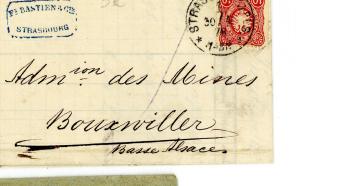 Fs BASTIEN & Cie
STRASBOURG
Adm.ion des Mines
Bouxwiller
Basse Alsace